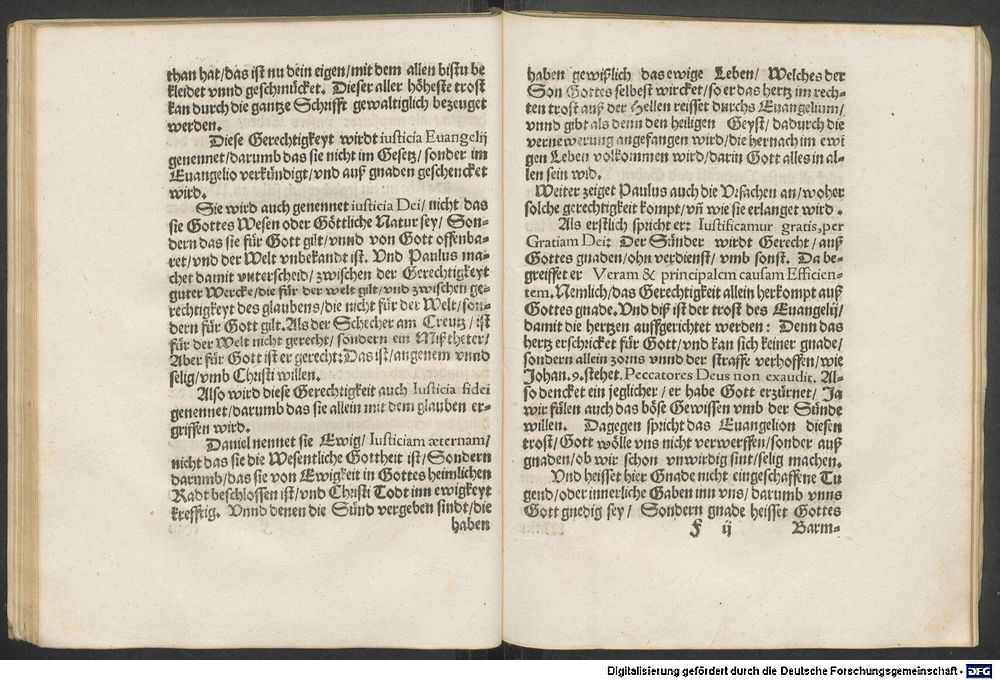 than hat/das ist nu dein eigen/mit dem allen bistu be
kleidet vnnd geschmücket. Dieser aller höheste trost
kan durch die gantze Schrifft gewaltiglich bezeuget
werden.
Diese Gerechtigkeyt wirdt iusticia Euangelij
genennet/darumb das sie nicht im Gesetz/sonder im
Euangelio verkündigt/vnd auß gnaden geschencket
wird.
Sie wird auch genennet iusticia Dei/nicht das
sie Gottes Wesen oder Göttliche Natur sey/Son-
dern das sie für Gott gilt/vnnd von Gott offenba-
ret/vnd der Welt vnbekandt ist. Vnd Paulus ma-
chet damit vnterscheid/zwischen der Gerechtigkeyt
guter Wercke/die für der welt gilt/vnd zwischen ge-
rechtigkeyt des glaubens/die nicht für der Welt/son-
dern für Gott gilt. Als der Schecher am Creutz/ist
für der Welt nicht gerecht/sondern ein Mißtheter/
Aber für Gott ist er gerecht: Das ist/angenem vnnd
selig/vmb Christi willen.
Also wird diese Gerechtigkeit auch Iusticia fidei
genennet/darumb das sie allein mit dem glauben er-
griffen wird.
Daniel nennet sie Ewig/Iusticiam æternam/
nicht das sie die Wesentliche Gottheit ist/Sondern
darumb/das sie von Ewigkeit in Gottes heimlichen
Radt beschlossen ist/vnd Christi Todt inn ewigkeyt
krefftig. Vnnd denen die Sünd vergeben sindt/die
haben
haben gewißlich das ewige Leben/Welches der
Son Gottes selbest wircket/so er das hertz im rech-
ten trost auß der Hellen reisset durchs Euangelium/
vnnd gibt als denn den heiligen Geyst/dadurch die
vernewerung angefangen wird/die hernach im ewi
gen Leben volkommen wird/darin Gott alles in al-
len sein wid.
Weiter zeiget Paulus auch die Vrsachen an/woher
solche gerechtigkeit kompt/vñ wie sie erlanget wird.
Als erstlich spricht er: Iustificamur gratis, per
Gratiam Dei: Der Sünder wirdt Gerecht/auß
Gottes gnaden/ohn verdienst/vmb sonst. Da be-
greiffet er Veram & principalem causam Efficien-
tem. Nemlich/das Gerechtigkeit allein herkompt auß
Gottes gnade. Vnd diß ist der trost des Euangelij/
damit die hertzen auffgerichtet werden: Denn das
hertz erschricket für Gott/vnd kan sich keiner gnade/
sondern allein zorns vnnd der straffe verhoffen/wie
Johan. 9. stehet. Peccatores Deus non exaudit. Al-
so dencket ein jeglicher/er habe Gott erzürnet/Ja
wir fülen auch das böse Gewissen vmb der Sünde
willen. Dagegen spricht das Euangelion diesen
trost/Gott wölle vns nicht verwerffen/sonder auß
gnaden/ob wir schon vnwirdig sint/selig machen.
Vnd heisset hier Gnade nicht eingeschaffene Tu
gend/oder innerliche Gaben inn vns/darumb vnns
Gott gnedig sey/Sondern gnade heisset Gottes
F ij Barm-
Digitalisierung gefördert durch die Deutsche Forschungsgemeinschaft - DFG